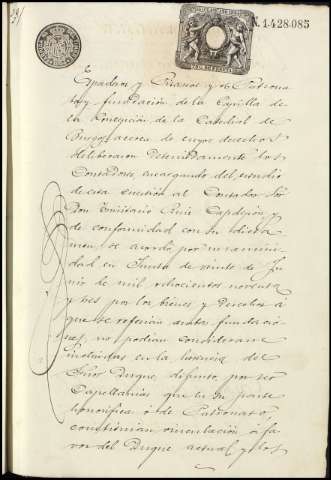 N. 1.428.085
Cuadros y Pisanos y de Patrona
to y fundación de la Capilla de
la Concepción de la Catedral de
Burgos, acerca de cuyos derechos
deliberaron detenidamente los
Contadores, encargando del estudio
de esta cuestión al Contador Sr.
Don Emiterio Ruiz Capdejón y
de conformidad con su dicta
men, se acordó por unanimi
dad en Junta de veinte de Ju
nio de mil ochocientos noventa
y tres por los bienes y derechos á
que se referían ambas fundacio
nes, no podían considerarse
incluidas en la herencia del
Señor Duque, difunto, por ser
Capellanías que en su parte
honorífica ó de Patronato,
constituían vinculación á fa
vor del Duque actual y los